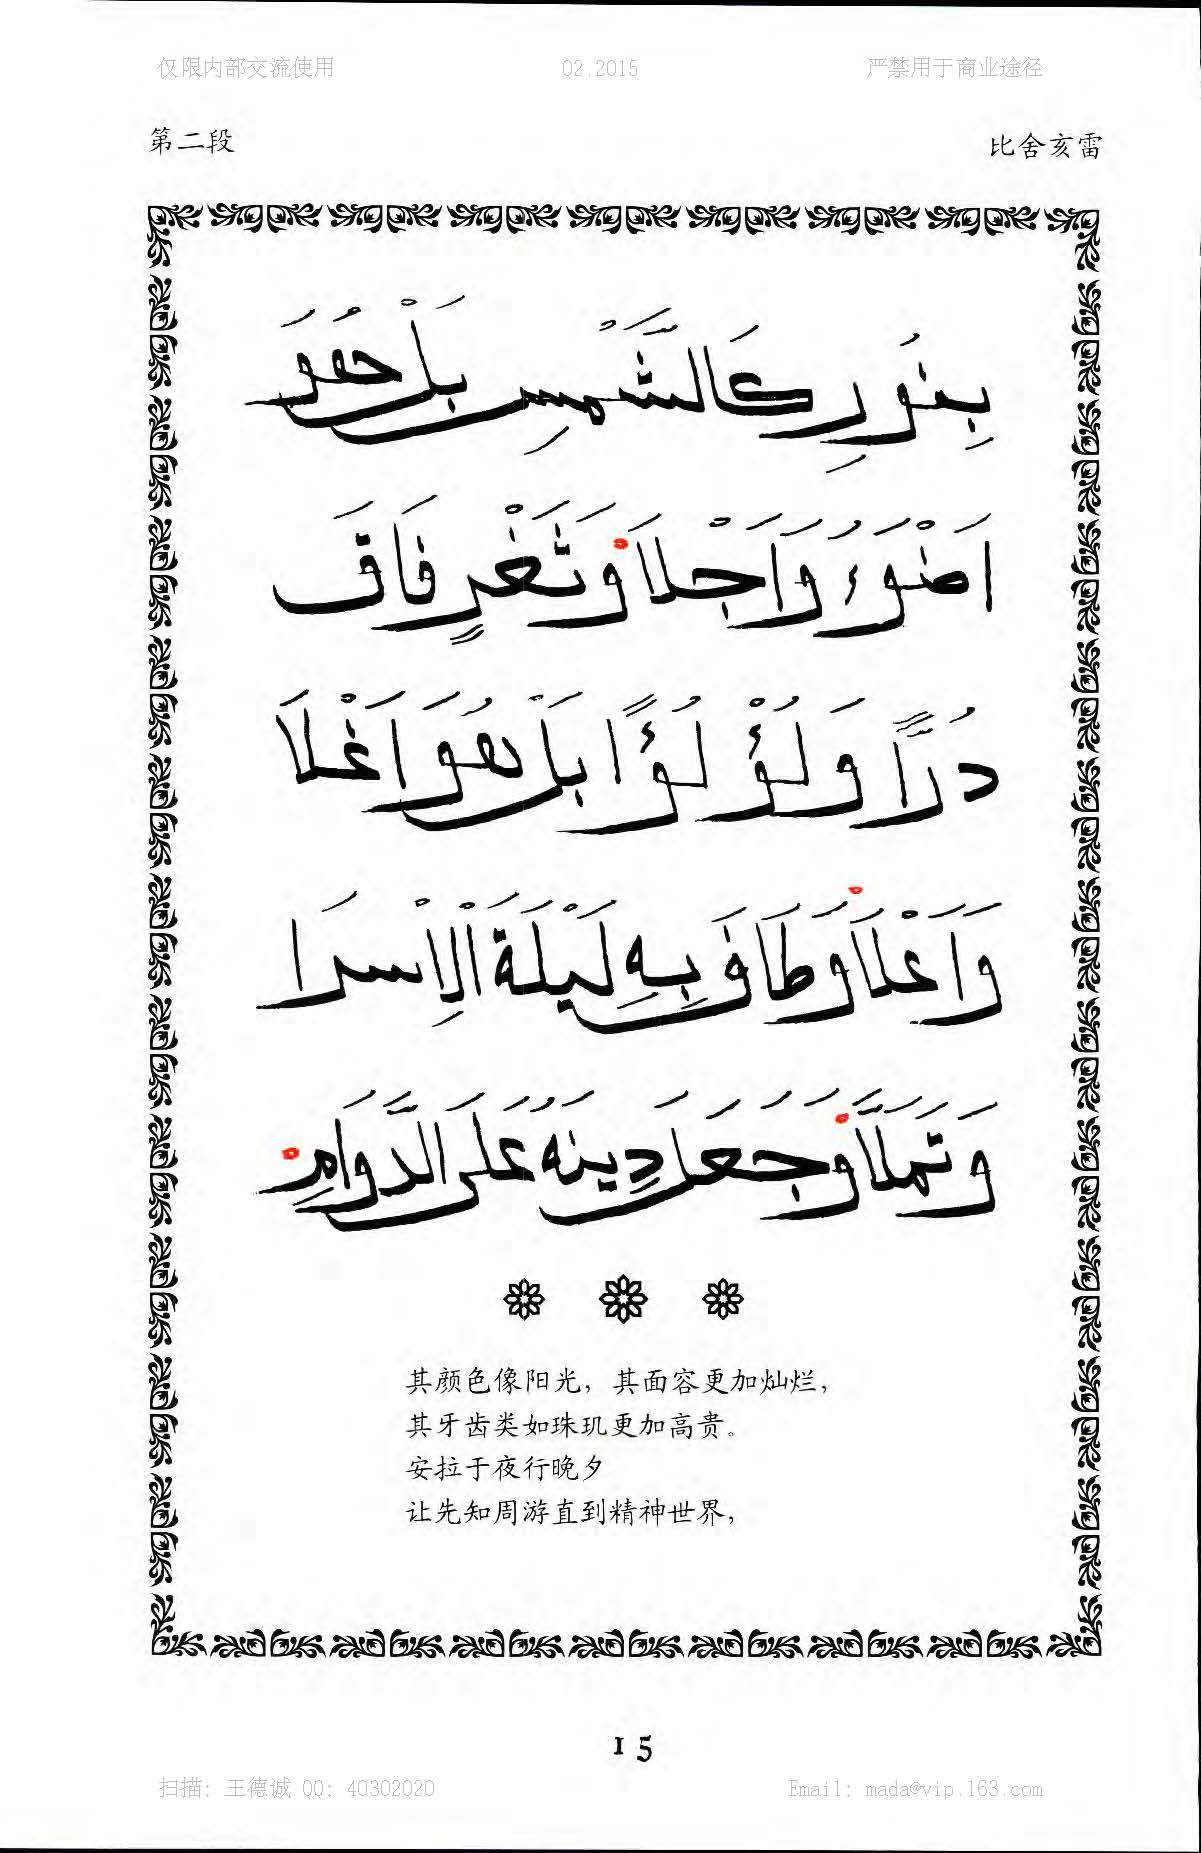 仅限内部交流使用 02.2015 严禁用于商业途径
第二段 比舍亥雷
بِنُورٍ كَالشَّمْسِ بَلْ هُوَ
اَضْوَءُ وَاَجْلَا وَثَغْرٍ فَاقَ
دُرًّا وَلُؤْلُؤًا بَلْ هُوَ اَغْلَا
وَاَعْلَا وَطَافَ بِهِ لَيْلَةَ الْاِسْرَا
وَتَمَلَّا وَجَعَلَ دِينَهُ عَلَى الدَّوَامِ
其颜色像阳光，其面容更加灿烂，
其牙齿类如珠玑更加高贵。
安拉于夜行晚夕
让先知周游直到精神世界，
15
扫描: 王德诚 QQ: 40302020 Email: mada@vip.163.com